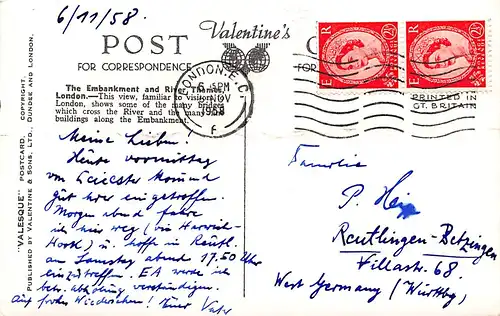 6/11/58.
Valentine's
POST C
FOR CORRESPONDENCE FOR
E R 2½D
E R 2½D
LONDON. E.C.
6 NOV
1958
F
PRINTED IN
GT. BRITAIN
The Embankment and River Thames,
London.—This view, familiar to visitors to
London, shows some of the many bridges
which cross the River and the many fine
buildings along the Embankment.
"VALESQUE" POSTCARD. COPYRIGHT.
PUBLISHED BY VALENTINE & SONS, LTD., DUNDEE AND LONDON.
Meine Lieben!
Heute vormittag
von Leicester kommend
gut hier eingetroffen.
Morgen abend fahre
ich hier weg (via Harwich-
Hoek) u. hoffe in Reutl.
am Samstag abend 17.50 Uhr
einzutreffen. EA werde ich
betr. Abholung verständigen.
Auf frohes Wiedersehen! Euer Vater
Familie
P. Hein
Reutlingen-Betzingen
Villastr. 68
West Germany (Württbg)